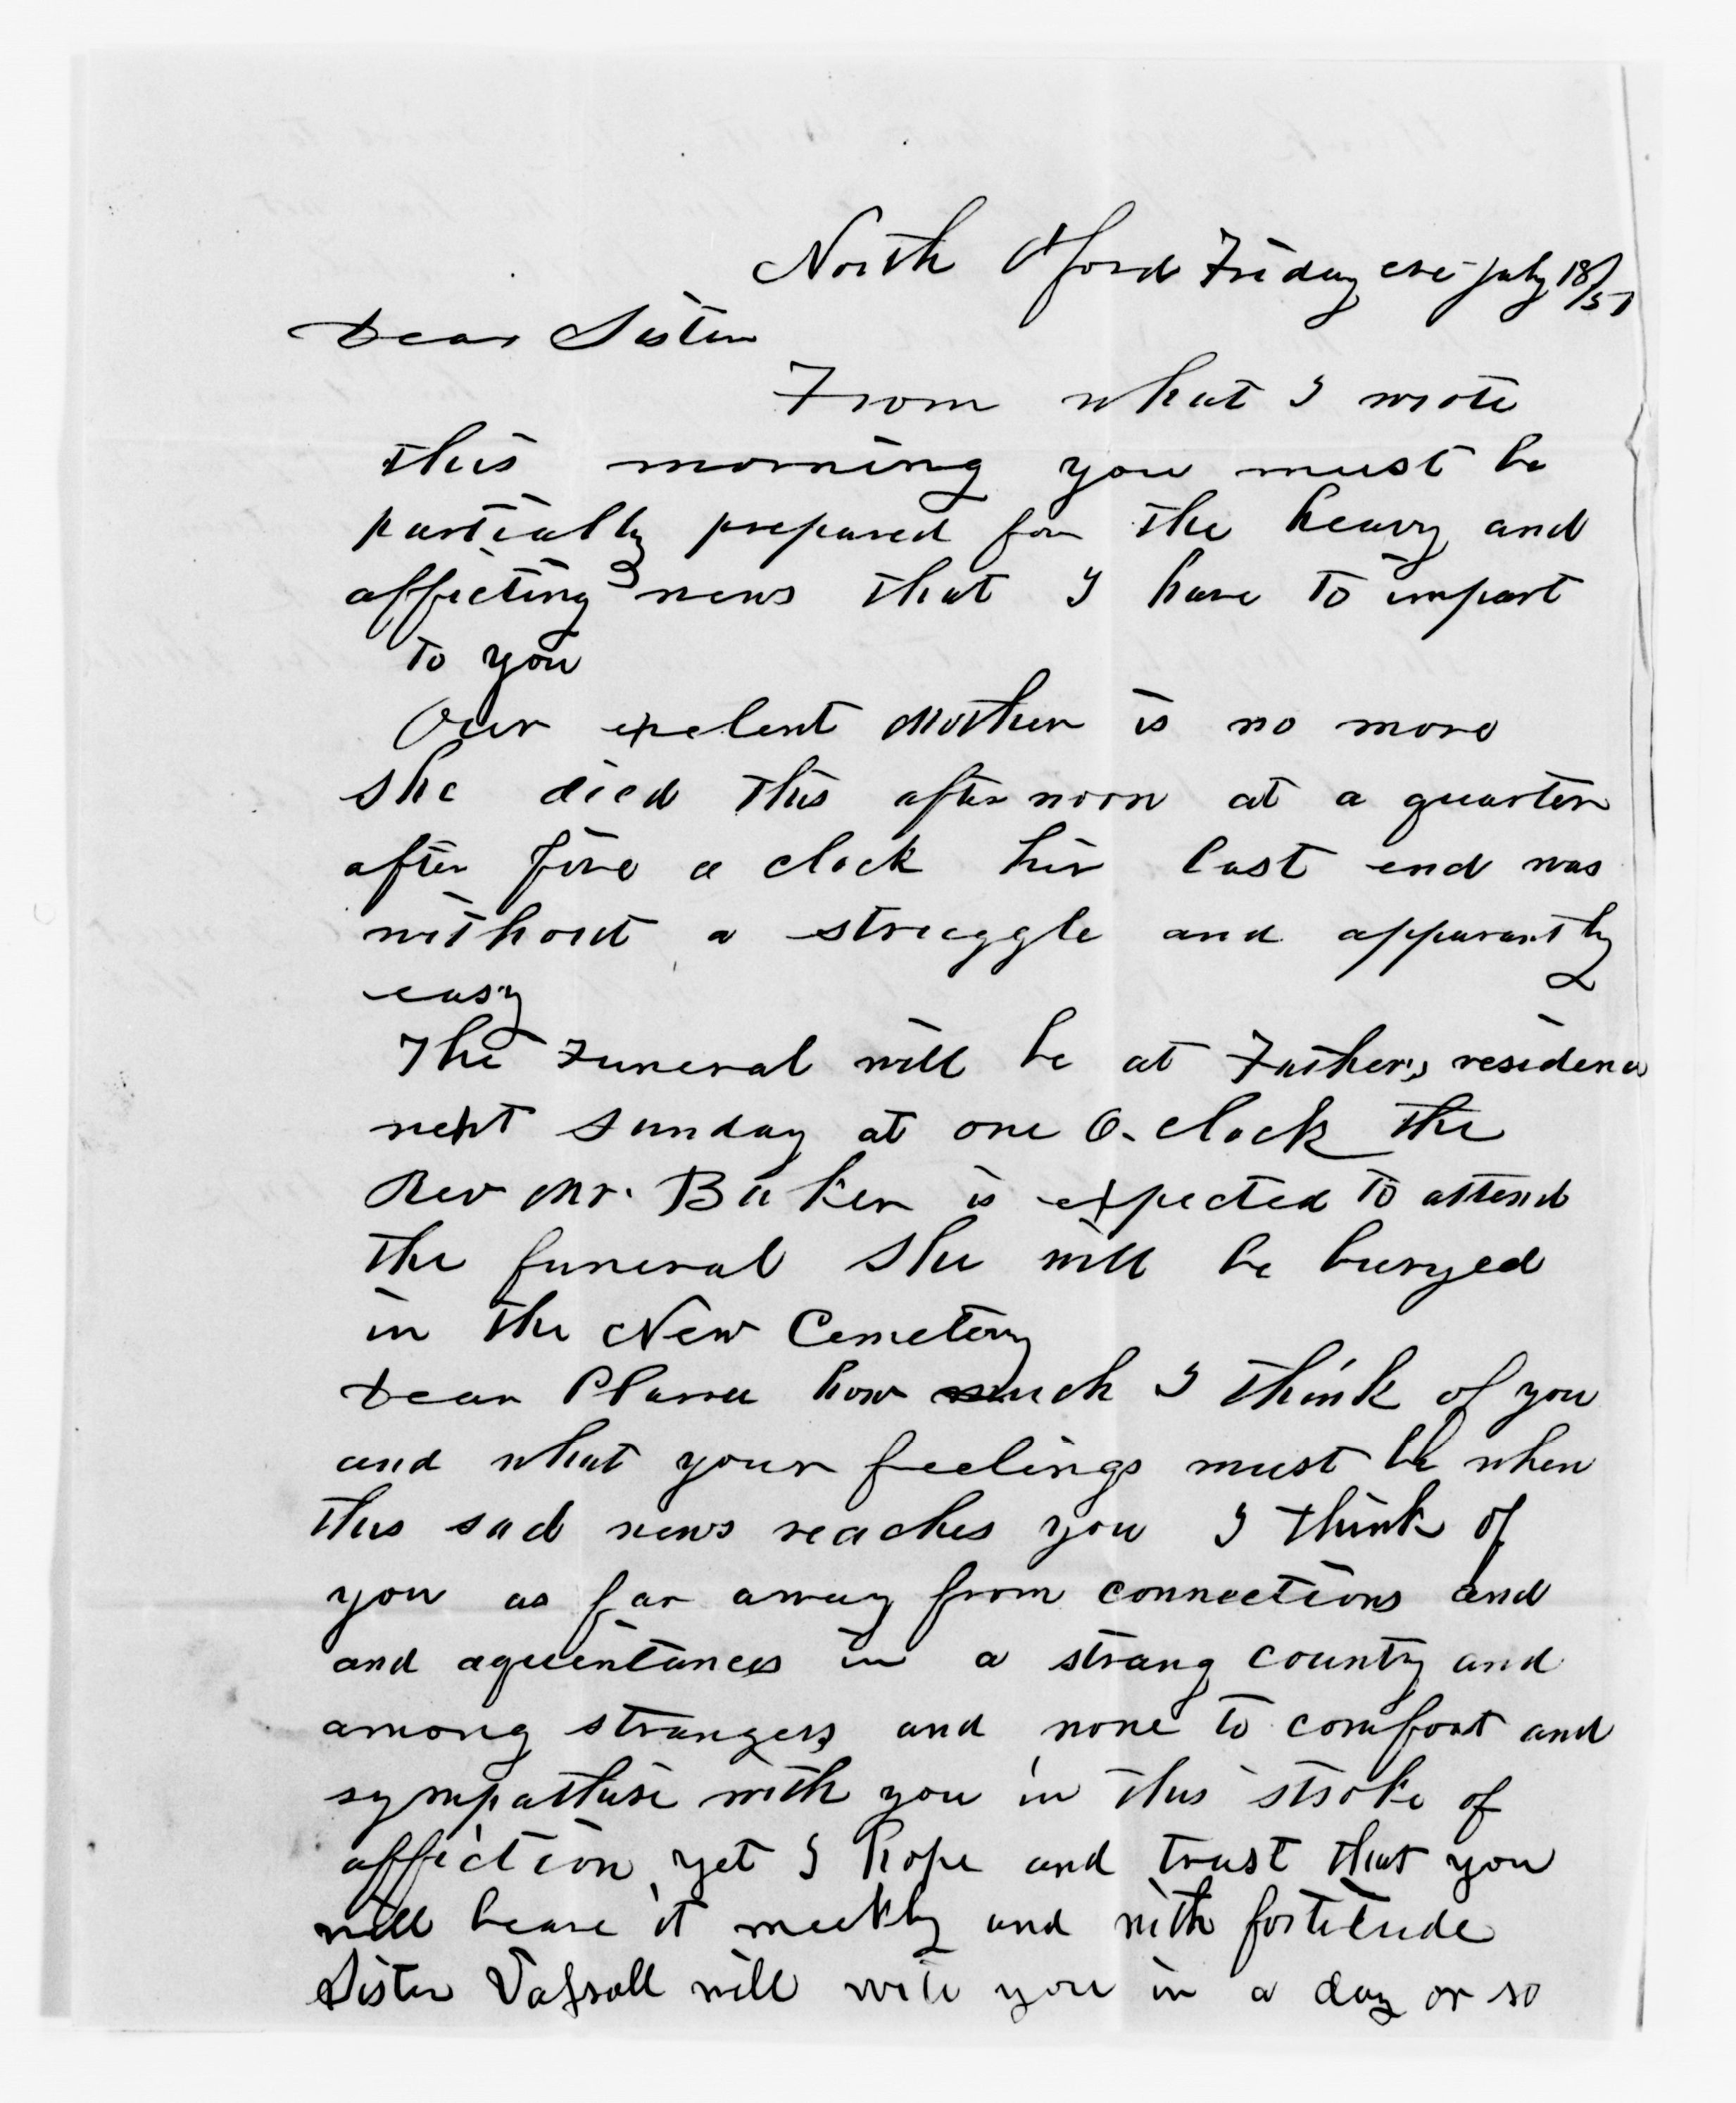 North Oxford Friday eve July 18/51
Dear Sister
From what I wrote
this morning you must be
partially prepared for the heavy and
afficting news that I have to impart
to you
Our exelent Mother is no more
She died this afternoon at a quarter
after five o clock hir last end was
without a struggle and apparantly
easy
The Funeral will be at Father,s residence
next Sunday at one O. clock the
Rev Mr. Baker is expected to attend
the funeral She will be buryed
in the New Cemetery
Dear Clara how much I think of you
and what your feelings must be when
this sad news reaches you I think of
you as far away from connections and
and aquintances in a strang county and
among strangers and none to comfort and
sympathise with you in this stroke of
affiction yet I hope and trust that you
will beare it meekly and with fortitude
Sister Vassall will write you in a day or so